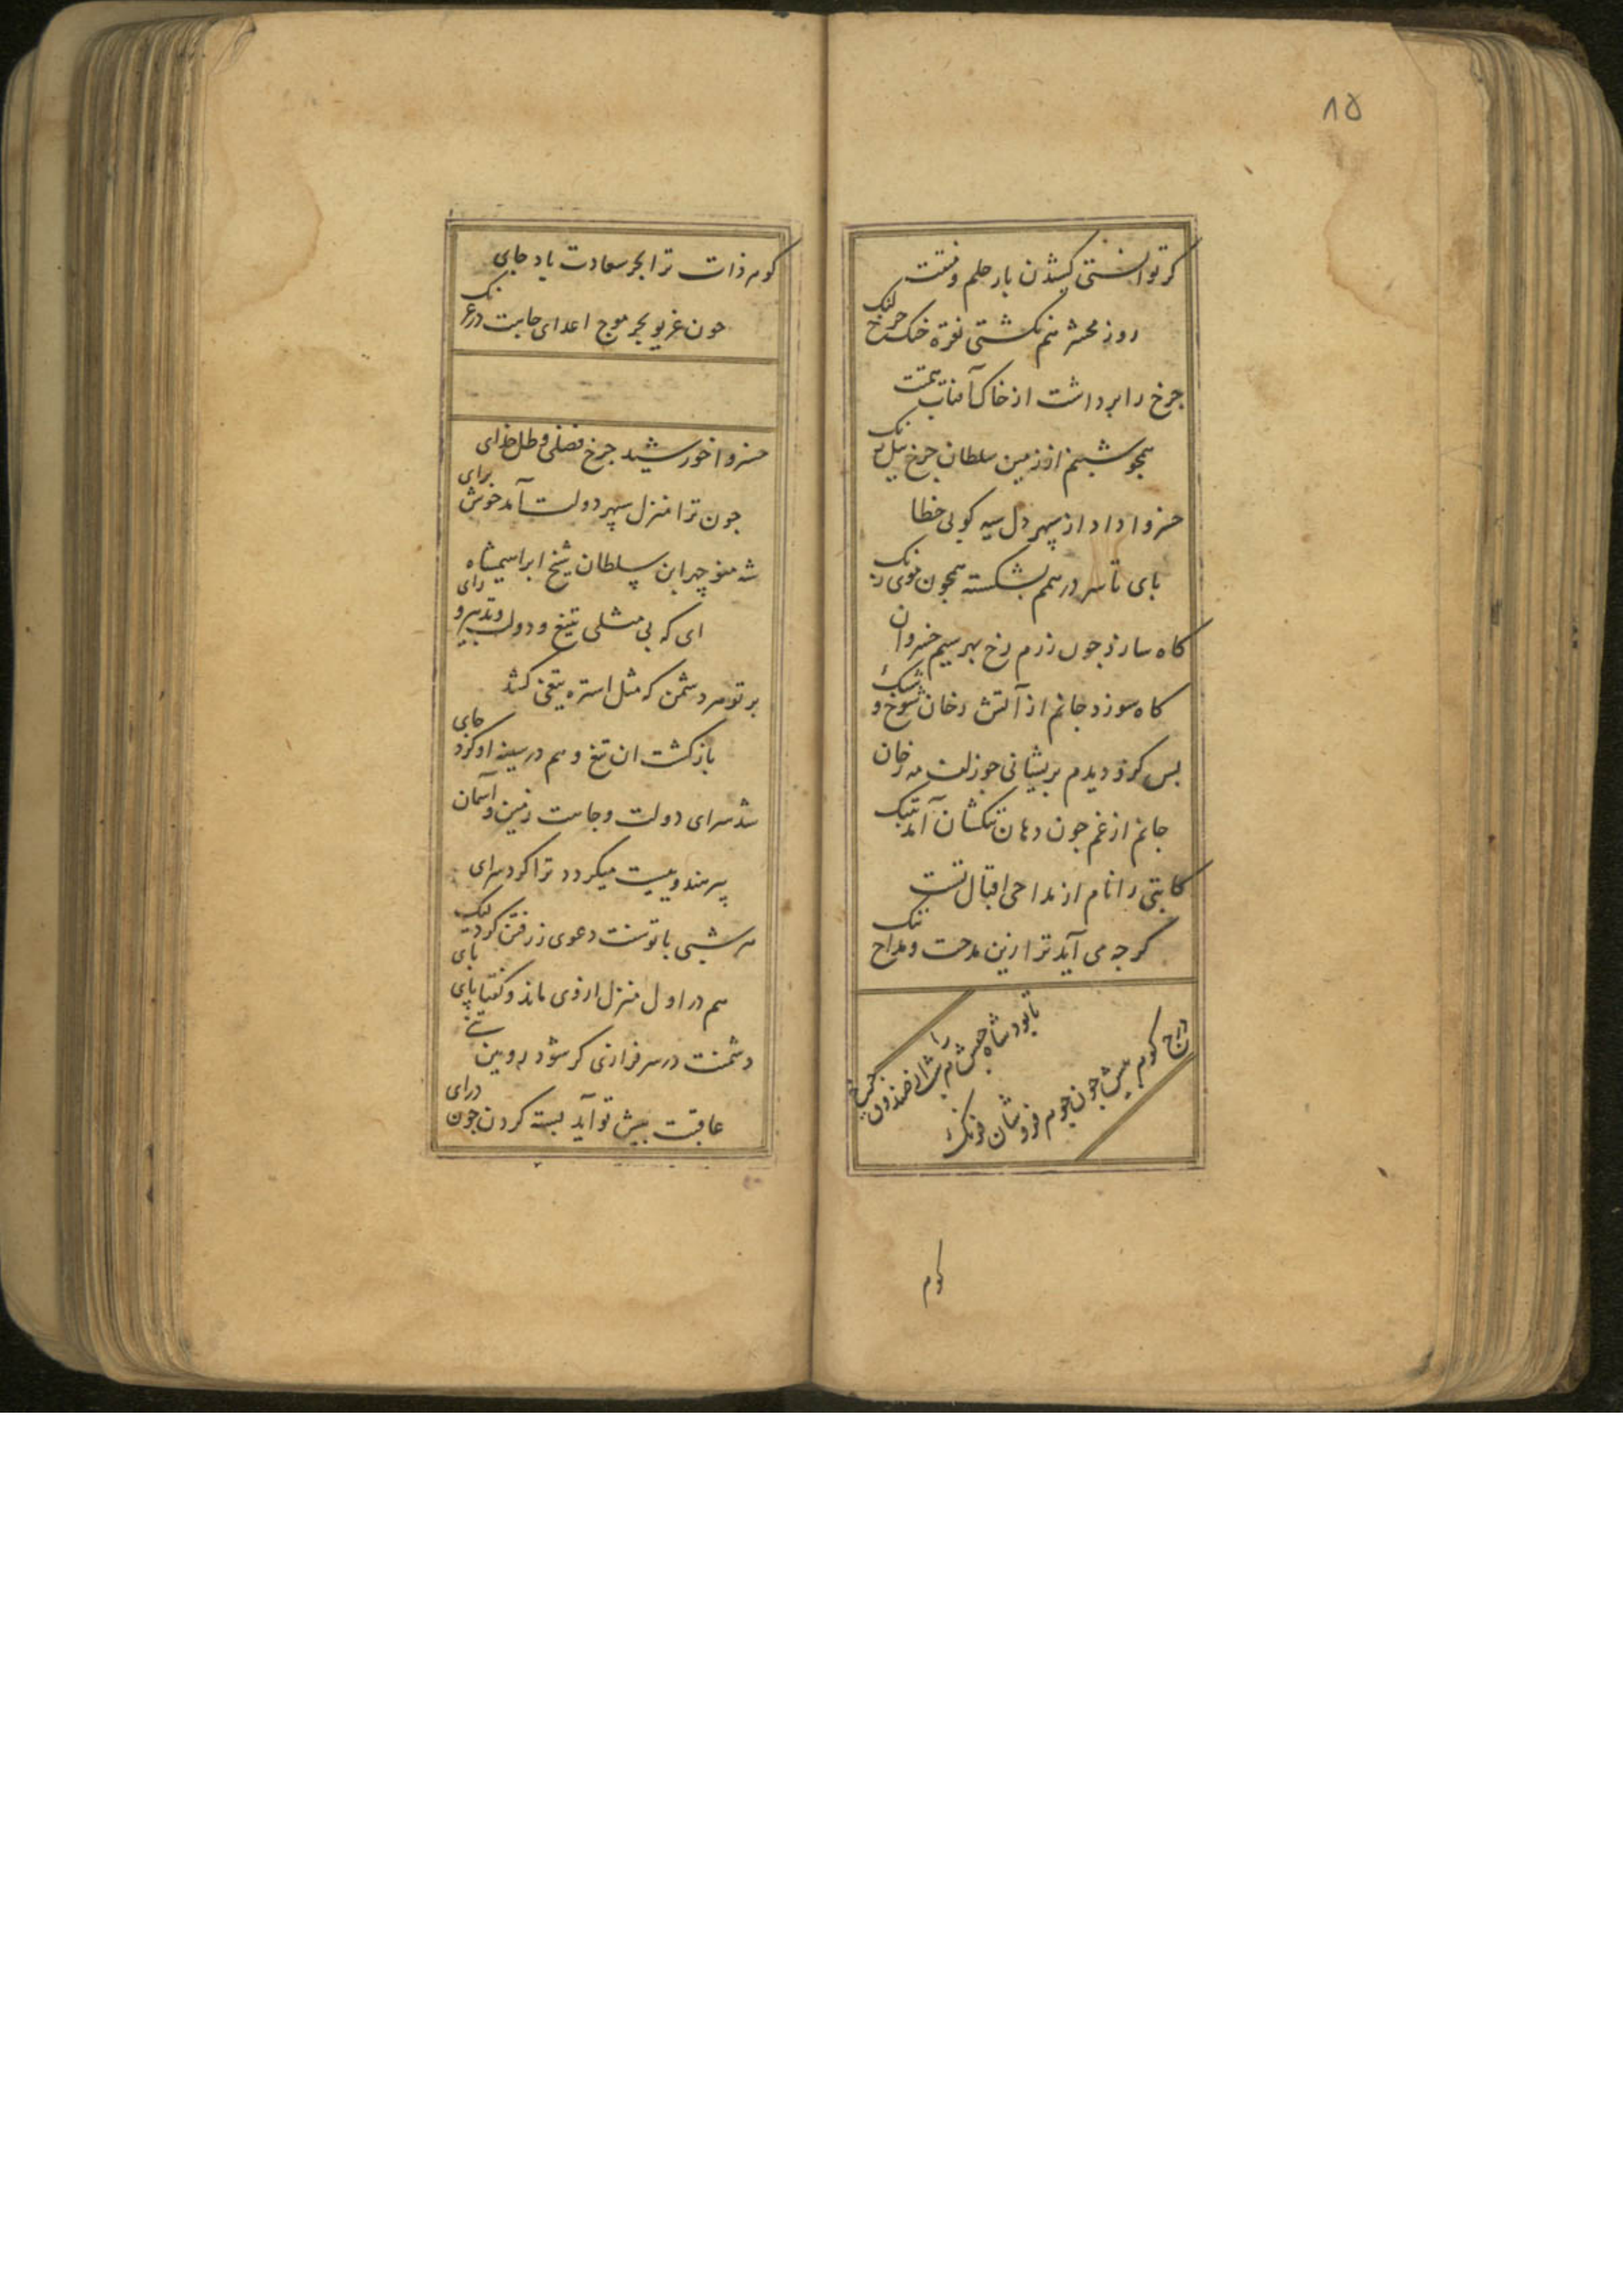 ۸۵
کر توانستی کشیدن بار حلم و منتت
روز محشر هم نکشتی نقره خنک چرخ لنک
چرخ را برداشت از خاک آفتاب همتت
همچو شبنم از زمین سلطان چرخ نیل رنک
خسروا داد از سپهر دل سیه کو بی خطا
بای تا سر در همم بشکسته همچون موی زنک
کاه سازد چون زرم رخ بهر سیم خسروان
کاه سوزد جانم از آتش رخان شوخ و شنک
بس کزو دیدم بریشانی جو زلف مه رخان
جانم از غم جون دهان تنکشان آمد بتنک
کاتبی را نام از مداحی اقبال تست
کرجه می آید ترا زین مدحت و مداح ننک
تا بود شاه حبش هر شام را
درج کوهر بیش جون جوهر فروشان فرنک
کوهر
کوهر ذات ترا بحر سعادت باد جای
جون غریو بحر موج اعدای جاهت در غرنک
خسروا خورشید جرخ فضلی و ظل خدای
جون ترا منزل سپهر دولت آمد خوش برای
شه منوچهر ابن سلطان شیخ ابراهیمشاه
ای که بی مثلی بتیغ و دولت و تدبیر و رای
بر تو هر دشمن که مثل استره تیغی کشد
بازکشت ان تیغ و هم در سینه او کرد جای
شد سرای دولت و جاهت زمین و آسمان
پیر هندوییست میکردد ترا کرد سرای
هر شبی با توسنت دعوی ز رفتن کرد لیک
هم در اول منزل از وی ماند و کفتا بای بای
دشمنت در سرفرازی کر شود رویین تنی
عاقبت بیش تو آید بسته کردن جون درای